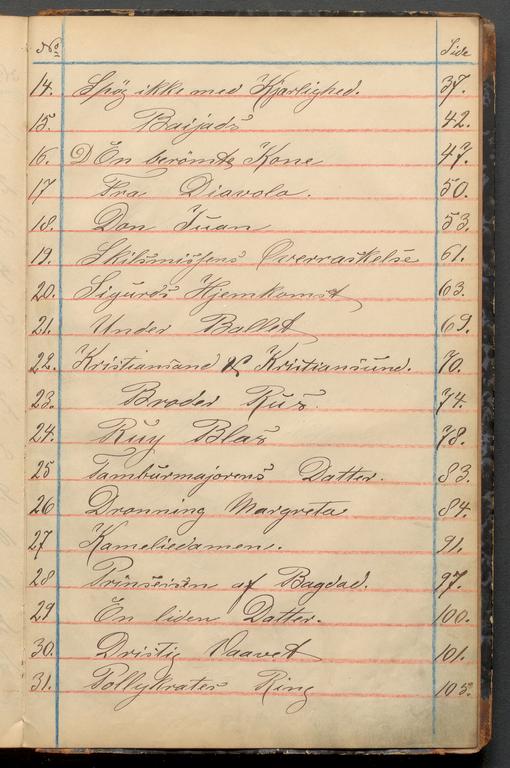 No Side
14. Spög ikke med Kjærlighed. 37.
15. Baijads 42.
16. En berömte Kone 47.
17 Fra Diavolo. 50.
18. Don Juan 53.
19. Skilsmissens Overraskelse 61.
20. Sigurds Hjemkomst 63.
21. Under Ballet 69.
22. Kristiansand & Kristiansund. 70.
23. Broder Rus. 74.
24. Ruy Blas 78.
25 Tamburmajorens Datter. 83.
26 Dronning Margreta 84.
27 Kameliedamen. 91.
28 Prinsessen af Bagdad. 97.
29 En liden Datter. 100.
30. Dristig Vaavet 101.
31. Pollykrates Ring 105.